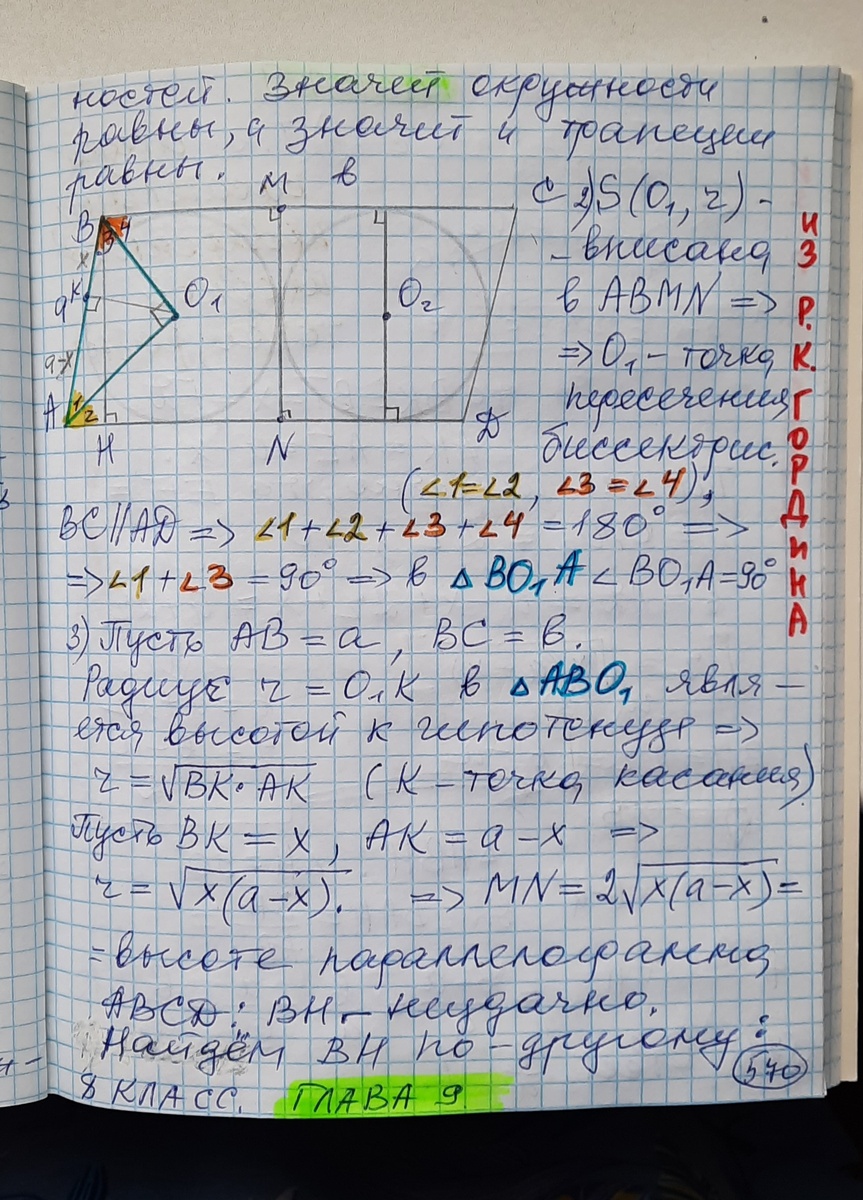 ностей. Значит окружности
равны, а значит и трапеции
равны.
M в
B 3 4
x
K
a
a-x
A 1 2
H
N
O₁
O₂
C
D
2) S(O₁, r) -
- вписана
в ABMN =>
=> O₁ - точка
пересечения
биссектрис.
(∠1=∠2, ∠3=∠4),
BC||AD => ∠1+∠2+∠3+∠4=180° =>
=> ∠1+∠3=90° => в △BO₁A ∠BO₁A=90°
3) Пусть AB = a, BC = в.
Радиус r = O₁K в △ABO₁ явля-
ется высотой к гипотенузе =>
r = √BK·AK (K - точка касания)
Пусть BK = x, AK = a-x =>
r = √x(a-x). => MN = 2√x(a-x) =
= высоте параллелограмма
ABCD: BH - неудачно.
Найдём BH по-другому:
570
8 КЛАСС. ГЛАВА 9
ИЗ Р. К. ГОРДИНА